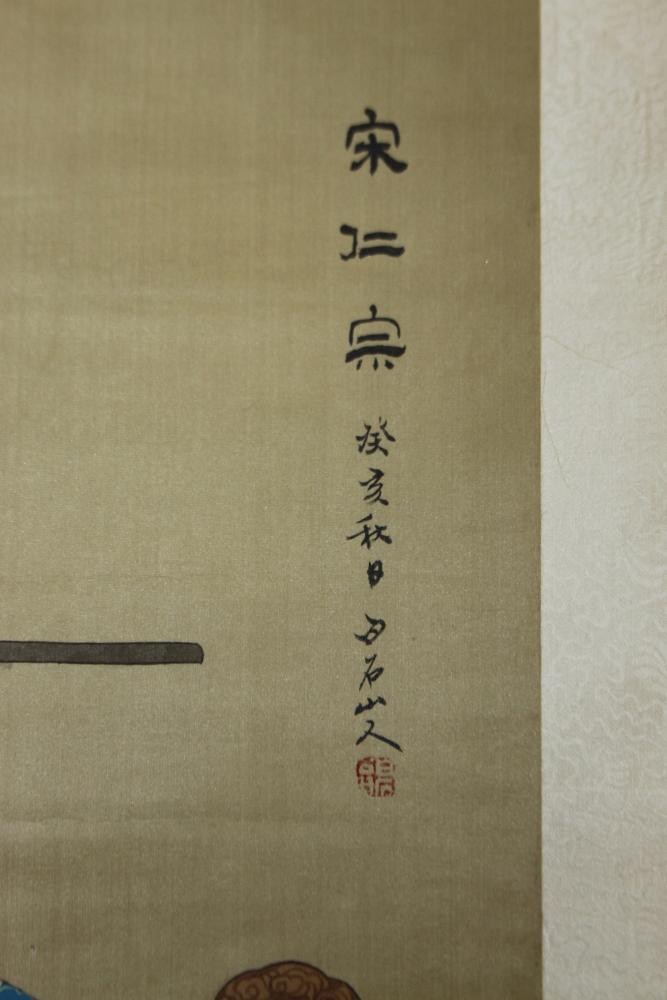 宋仁宗 癸亥秋日 白石山人